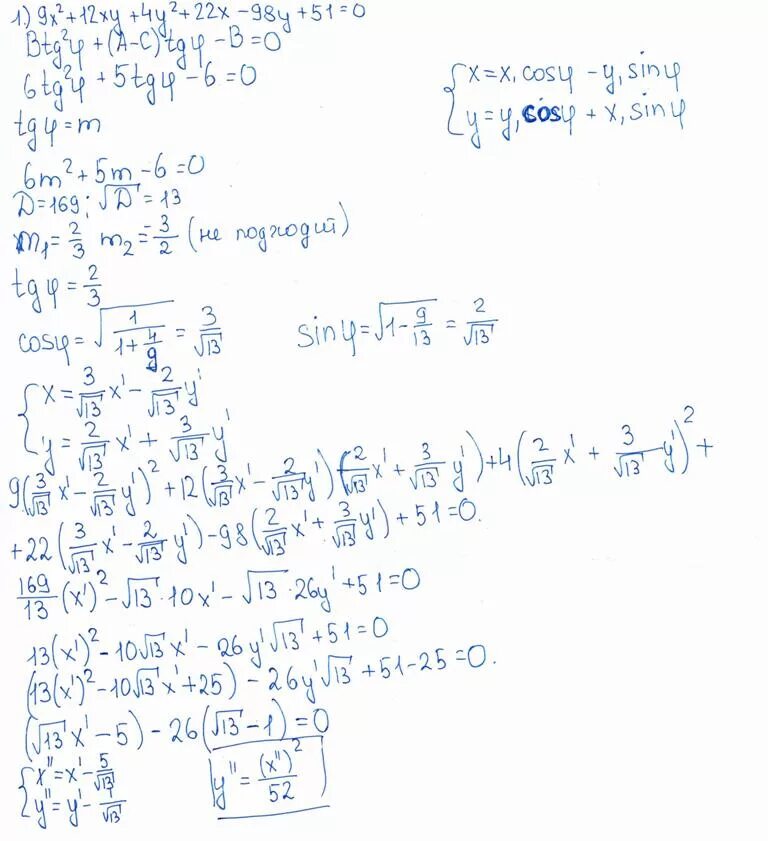 1.) 9x² + 12xy + 4y² + 22x - 98y + 51 = 0
Btg²φ + (A-C)tgφ - B = 0
6tg²φ + 5tgφ - 6 = 0
{ x = x₁cosφ - y₁sinφ
y = y₁cosφ + x₁sinφ
tgφ = m
6m² + 5m - 6 = 0
D = 169; √D = 13
m₁ = 2/3 m₂ = -3/2 (не подходит)
tgφ = 2/3
cosφ = √(1/(1+4/9)) = 3/√13 sinφ = √(1 - 9/13) = 2/√13
{ x = 3/√13 x' - 2/√13 y'
y = 2/√13 x' + 3/√13 y'
9(3/√13 x' - 2/√13 y')² + 12(3/√13 x' - 2/√13 y')(2/√13 x' + 3/√13 y') + 4(2/√13 x' + 3/√13 y')² +
+ 22(3/√13 x' - 2/√13 y') - 98(2/√13 x' + 3/√13 y') + 51 = 0.
169/13 (x')² - √13 · 10x' - √13 · 26y' + 51 = 0
13(x')² - 10√13 x' - 26y'√13 + 51 = 0
(13(x')² - 10√13 x' + 25) - 26y'√13 + 51 - 25 = 0.
(√13 x' - 5) - 26(√13 - 1) = 0
{ x'' = x' - 5/√13
y'' = y' - 1/√13
y'' = (x'')²/52